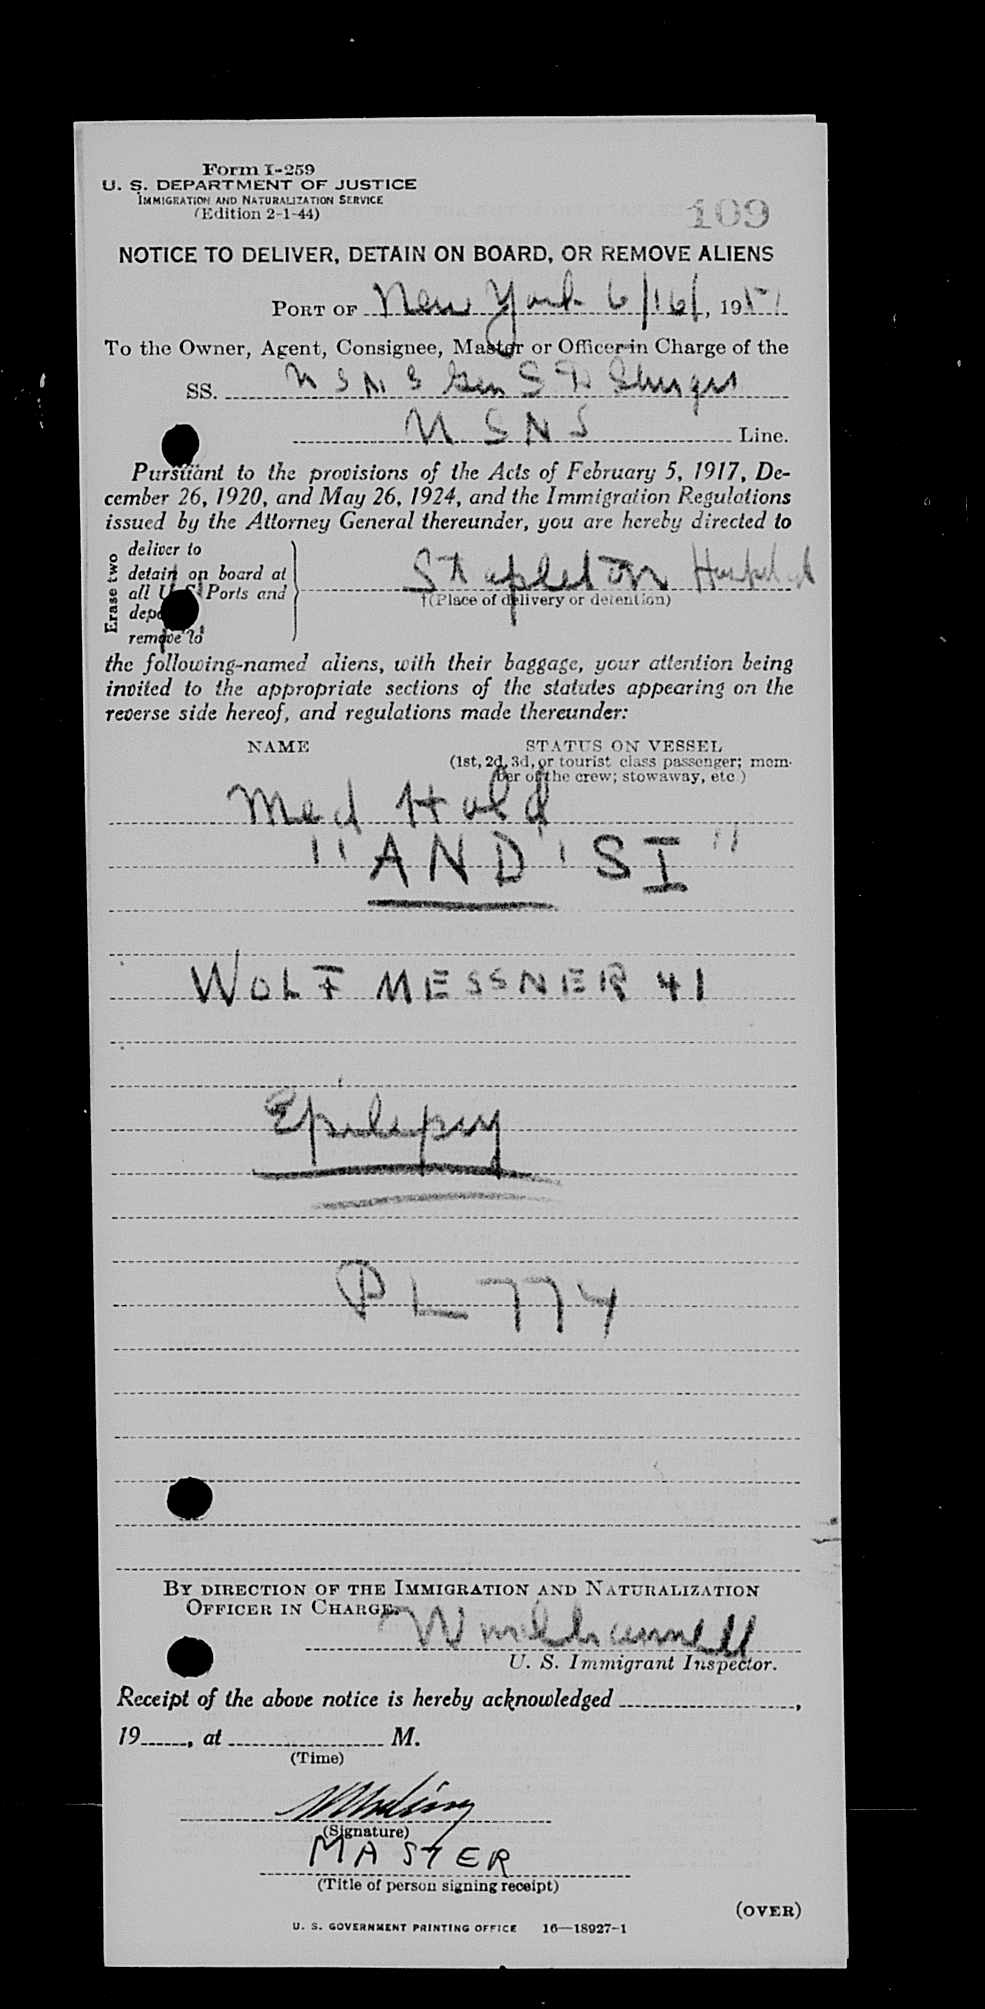 Form I-259
U. S. DEPARTMENT OF JUSTICE
IMMIGRATION AND NATURALIZATION SERVICE
(Edition 2-1-44)
109
NOTICE TO DELIVER, DETAIN ON BOARD, OR REMOVE ALIENS
PORT OF New York 6/16/, 1951
To the Owner, Agent, Consignee, Master or Officer in Charge of the
SS. U S N S Gen S D Sturgis
U S N S Line.
Pursuant to the provisions of the Acts of February 5, 1917, De-
cember 26, 1920, and May 26, 1924, and the Immigration Regulations
issued by the Attorney General thereunder, you are hereby directed to
Erase two
deliver to
detain on board at
all U. S. Ports and
remove to
Stapleton Hospital
†(Place of delivery or detention)
the following-named aliens, with their baggage, your attention being
invited to the appropriate sections of the statutes appearing on the
reverse side hereof, and regulations made thereunder:
NAME
STATUS ON VESSEL
(1st, 2d, 3d, or tourist class passenger; mem-
ber of the crew; stowaway, etc.)
Med Hold
"AND' SI"
WOLF MESSNER 41
Epilepsy
PL 774
BY DIRECTION OF THE IMMIGRATION AND NATURALIZATION
OFFICER IN CHARGE.
U. S. Immigrant Inspector.
Receipt of the above notice is hereby acknowledged ,
19 , at M.
(Time)
(Signature)
MASTER
(Title of person signing receipt)
(OVER)
U. S. GOVERNMENT PRINTING OFFICE 16—18927-1